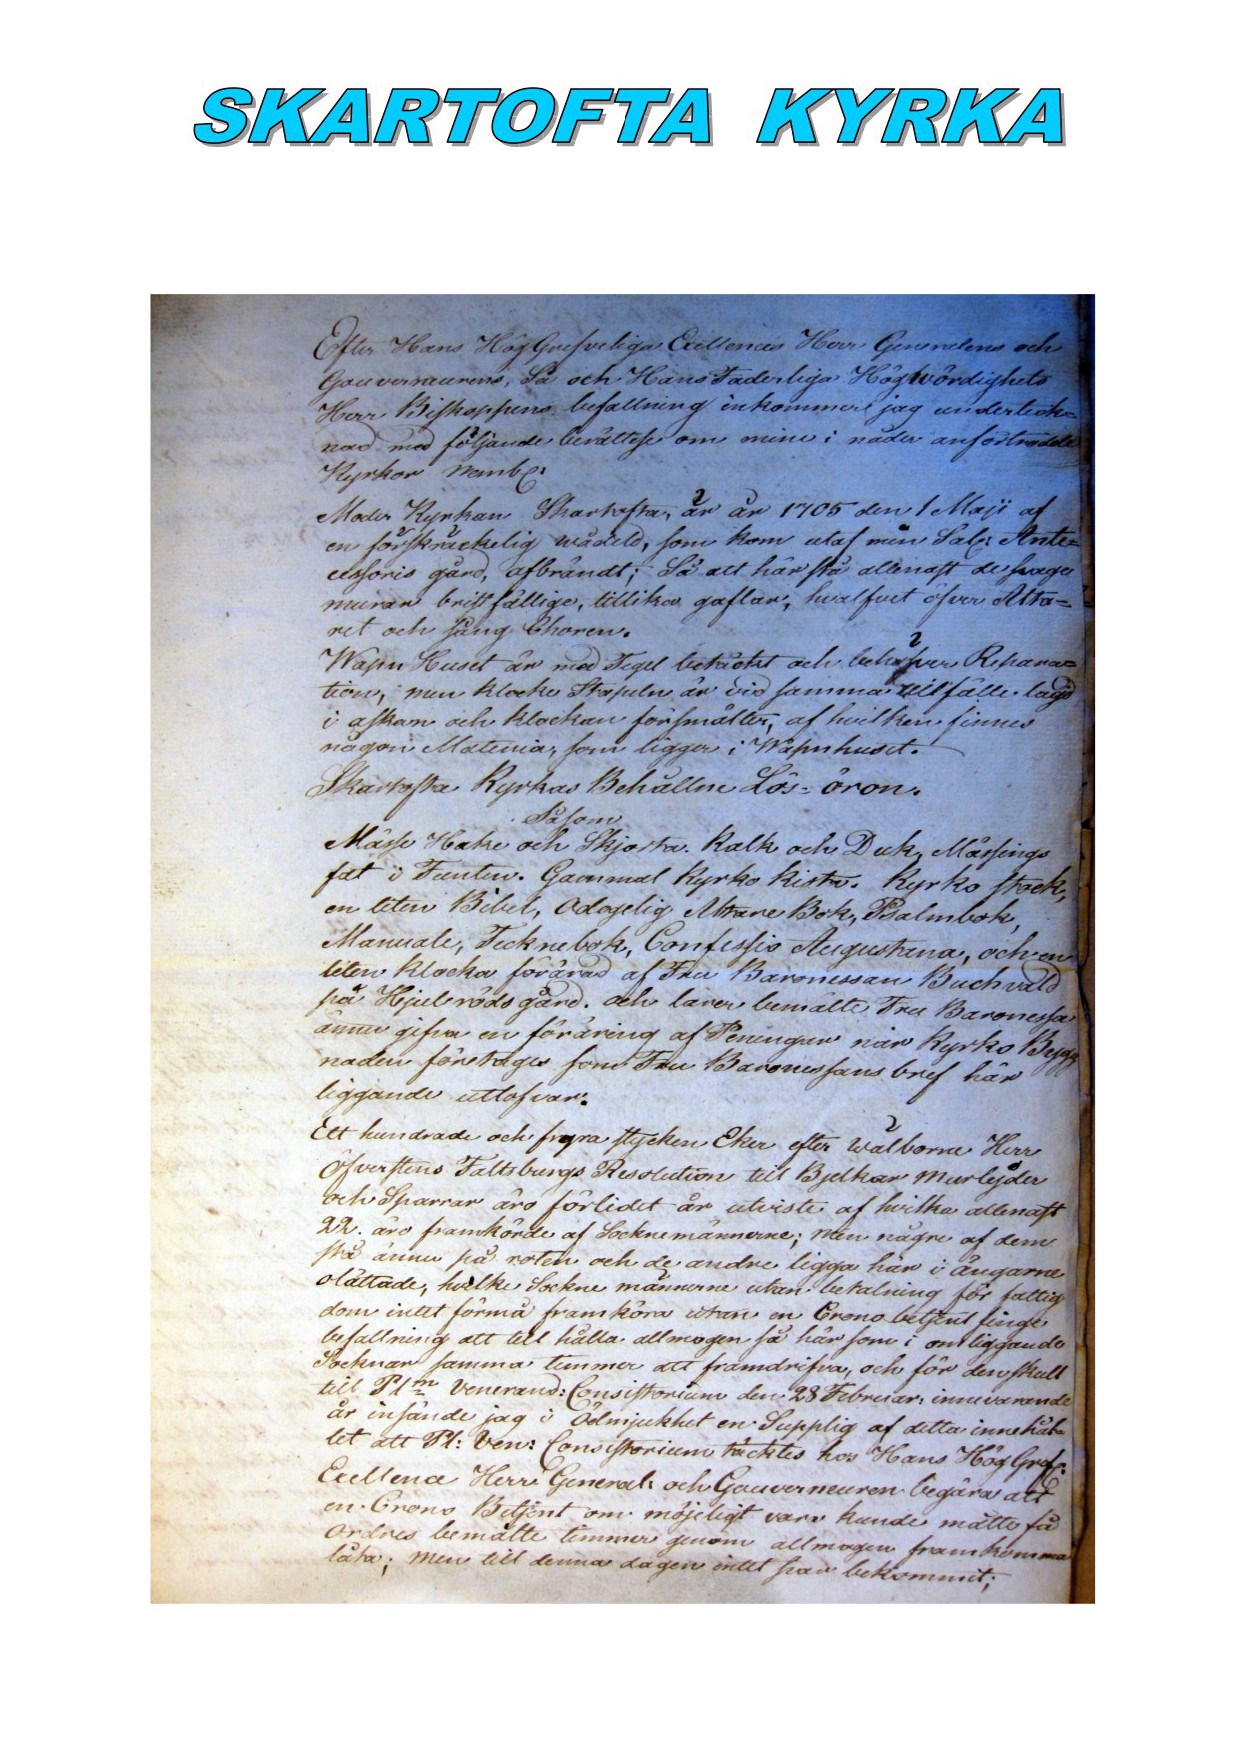 SKARTOFTA KYRKA
Efter Hans HögGrefveliga Excellences Herr Generalens och
Gouverneurens, Så och Hans Faderliga Högwördighets
Herr Biskoppens befallning inkommer jag underteck=
nad med följande berättelse om mine i nåder anförtrodde
Kyrkor Nembl:
Moder Kyrkan Skartofta, är år 1705 den 1 Maji af
en förskräckelig wådeld, som kom utaf min Sal: Ante=
cessoris gård, afbrändt; Så att här stå allenast de
murar bristfällige, tillika gaflar, hvalfvet öfver Alta=
ret och sång Choren.
WapnHuset är med Tegel betäckt och behöfver Repara=
tion, men klocke Stapeln är vid samma tillfälle lagd
i askan och klockan försmälter, af hvilken finnes
någon Materia, som ligger i Wapnhuset.
Skartofta Kyrkas Behållne Lös=ören.
Såsom
Mässe Hake och Skjorta. Kalk och Duk, Mässings
fat i Funten. Gammal Kyrko Kista. Kyrko stock,
en liten Bibel, Odogelig Altare Bok, Psalmbok,
Manuale, Tecknebok, Confessio Augustana, och en
liten Klocka förärad af Fru Baronessan Buchvald
på Hjuleröds gård. och lärer bemälte Fru Baronessa
ännu gifva en föräring af Peningar när Kyrko Bygg
naden företages som Fru Baronessans bref här
liggande utlofvar.
Ett hundrade och fyra stycken Eker efter Wälborne Herr
Öfverstens Faltsburgs Resolution till Bjelkar Murlejder
och Sparrar äro förlidet år utviste af hvilka allenast
22. äro framkörde af Socknemännerne; Men några af dem
stå ännu på roten och de andre ligga här i ängarne
olättade, hvilke Sockne männerne utan betalning för fattig
dom intet förmå framköra utan en Crono betjent finge
befallning att till hålla allmogen så här som i omliggande
Socknar samma timmer att framdrifva, och för den skull
till Pl:m Venerand: Consistorium den 28 Februar: innevarande
år insände jag i Ödmjukhet en Supplig af detta innehål=
let att Pl: Ven: Consistorium täcktes hos Hans HögGref:
Excellence Herr General: och Gouverneuren begära att
en Crono Betjent om möjeligt vara kunde måtte få
Ordres bemälte timmer genom allmogen framkomma
låta; Men till denna dagen intet svar bekommit;